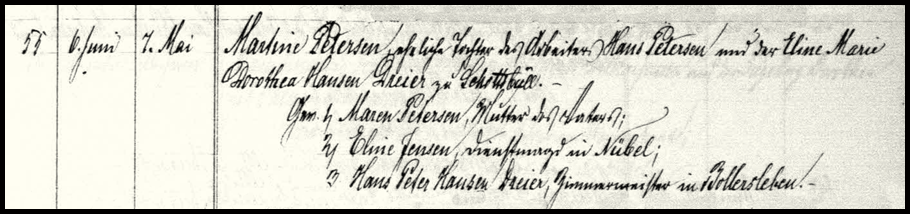 55 6. Juni 7. Mai Martine Petersen, eheliche Tochter des Arbeiters Hans Petersen und der Eline Marie
Dorothea Hansen Dreier zu Schottsbüll. –
Gev. 1, Maren Petersen, Mutter des Vaters;
2, Eline Jensen, Dienstmagd in Nübel;
3 Hans Peter Hansen Dreier, Zimmermeister in Bollersleben. –